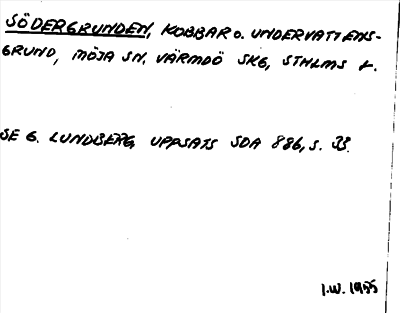 SÖDERGRUNDEN, KOBBAR O. UNDERVATTENS-
GRUND, MÖJA SN, VÄRMDÖ SKG, STHLMS L.
SE G. LUNDBERG, UPPSATS SDA 886, S. 33.
I.W. 1955